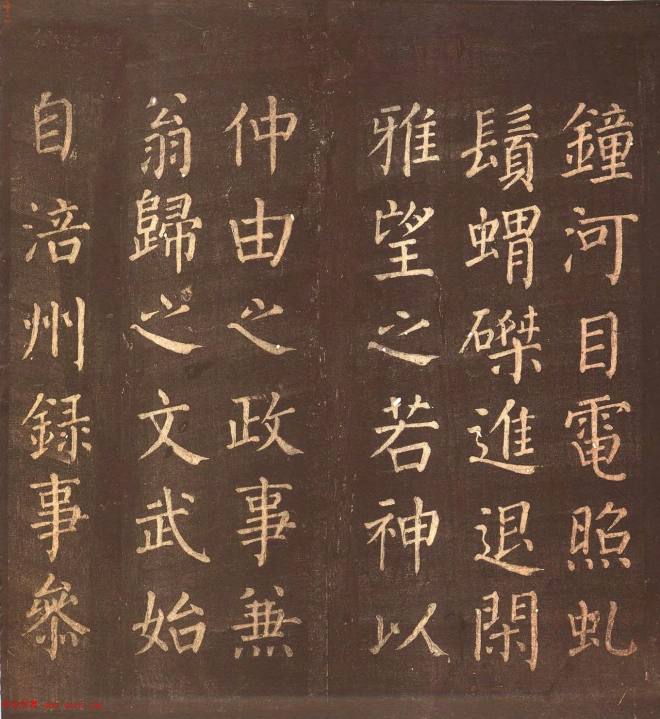 鐘河目電照虬
鬚蝟磔進退閑
雅望之若神以
仲由之政事兼
翁歸之文武始
自涪州録事叅